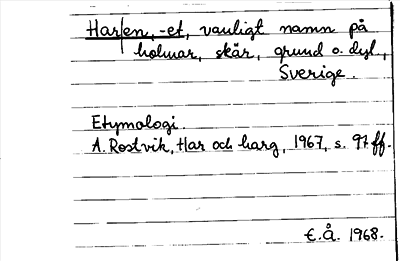 Har|en, -et, vanligt namn på
holmar, skär, grund o. dyl.,
Sverige.
Etymologi
A. Rostvik, Har och harg, 1967, s. 97 ff.
E.Å. 1968.